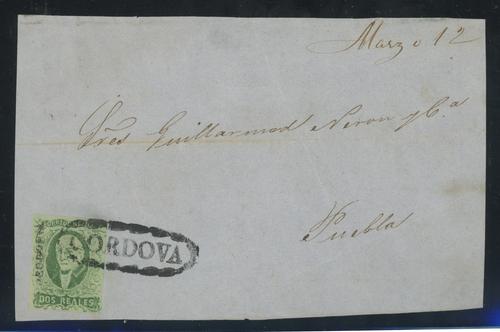 Marzo 12
Sres Guillarmod Neron y Ca
Puebla
CORDOVA
DOS REALES